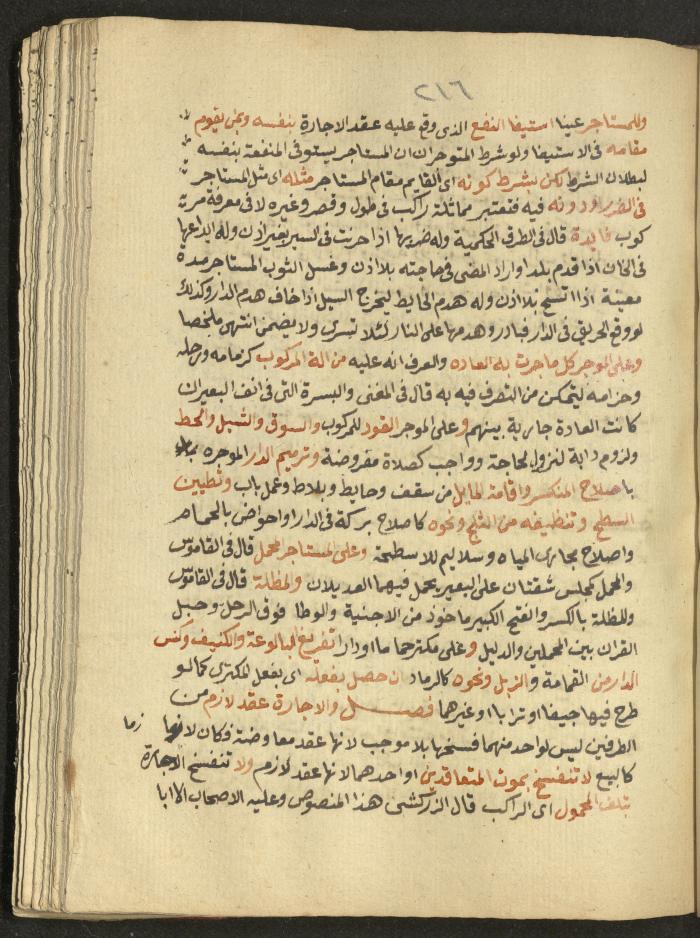 ٢١٦
وللمستاجر عينا استيفا النفع الذى وقع عليه عقد الاجارة بنفسه وبمن يقوم
مقامه فى الاستيفا ولو شرط المتوجر ان المستاجر يستوفى المنفعة بنفسه
لبطلان الشرط لكن بشرط كونه اى القايم مقام المستاجر مثله اى مثل المستاجر
فى الضرر او دونه فيه فتعتبر مماثلة راكب فى طول وقصر وغيره لا فى معرفة
كوب فايدة قال فى الطرق الحكمية وله ضربها اذا حرنت فى السير بغير اذن وله ايداعها
فى الخان اذا قدم بلدا واراد المضى فى حاجته بلا اذن وغسل الثوب المستاجر مدة
معينة اذا اتسخ بلا اذن وله هدم الحايط ليخرج السيل اذا خاف هدم الدار وكذلك
لو وقع الحريق فى الدار فبادر وهدمها على النار لئلا تسرى ولا يضمن انتهى ملخصا
وعلى الموجر كل ما جرت به العاده والعرف انه عليه من الة المركوب كزمامه ورحله
وحزامه ليتمكن من التصرف فيه به قال فى المغنى والبسرة التى فى انف البعير ان
كانت العادة جارية بينهم وعلى الموجر القود للمركوب والسوق والشيل والحط
ولزوم دابة لنزول لحاجة وواجب كصلاة مفروضة وترميم الدار الموجره
باصلاح المنكسر واقامة المايل من سقف وحايط وبلاط وعمل باب وتطيين
السطح وتنظيفه من الثلج ونحوه كاصلاح بركة فى الدار او احواض بالحمام
واصلاح مجارى المياه وسلاليم للاسطحة وعلى المستاجر المحمل قال فى القاموس
والمحمل كمجلس شقتان على البعير يحمل فيهما العديلان والمظلة قال فى القاموس
والمظلة بالكسر والفتح الكبير ماخوذ من الاخبية والوطا فوق الرحل وحبل
القران بين المحملين والدليل وعلى مكتر حماما او دارا تفريغ البالوعة والكنيف وكنس
الدار من القمامة والزبل ونحوه كالرماد ان حصل بفعله اى بفعل المكترى كما لو
طرح فيها جيفا او ترابا او غيرهما فصل والاجارة عقد لازم من
الطرفين ليس لواحد منهما فسخها بلا موجب لانها عقد معاوضة فكان لازما
كالبيع لا تنفسخ بموت المتعاقدين او احدهما لانها عقد لازم ولا تنفسخ الاجارة
بتلف المحمول اى الراكب قال الزركشى هذا المنصوص وعليه الاصحاب الا ابا